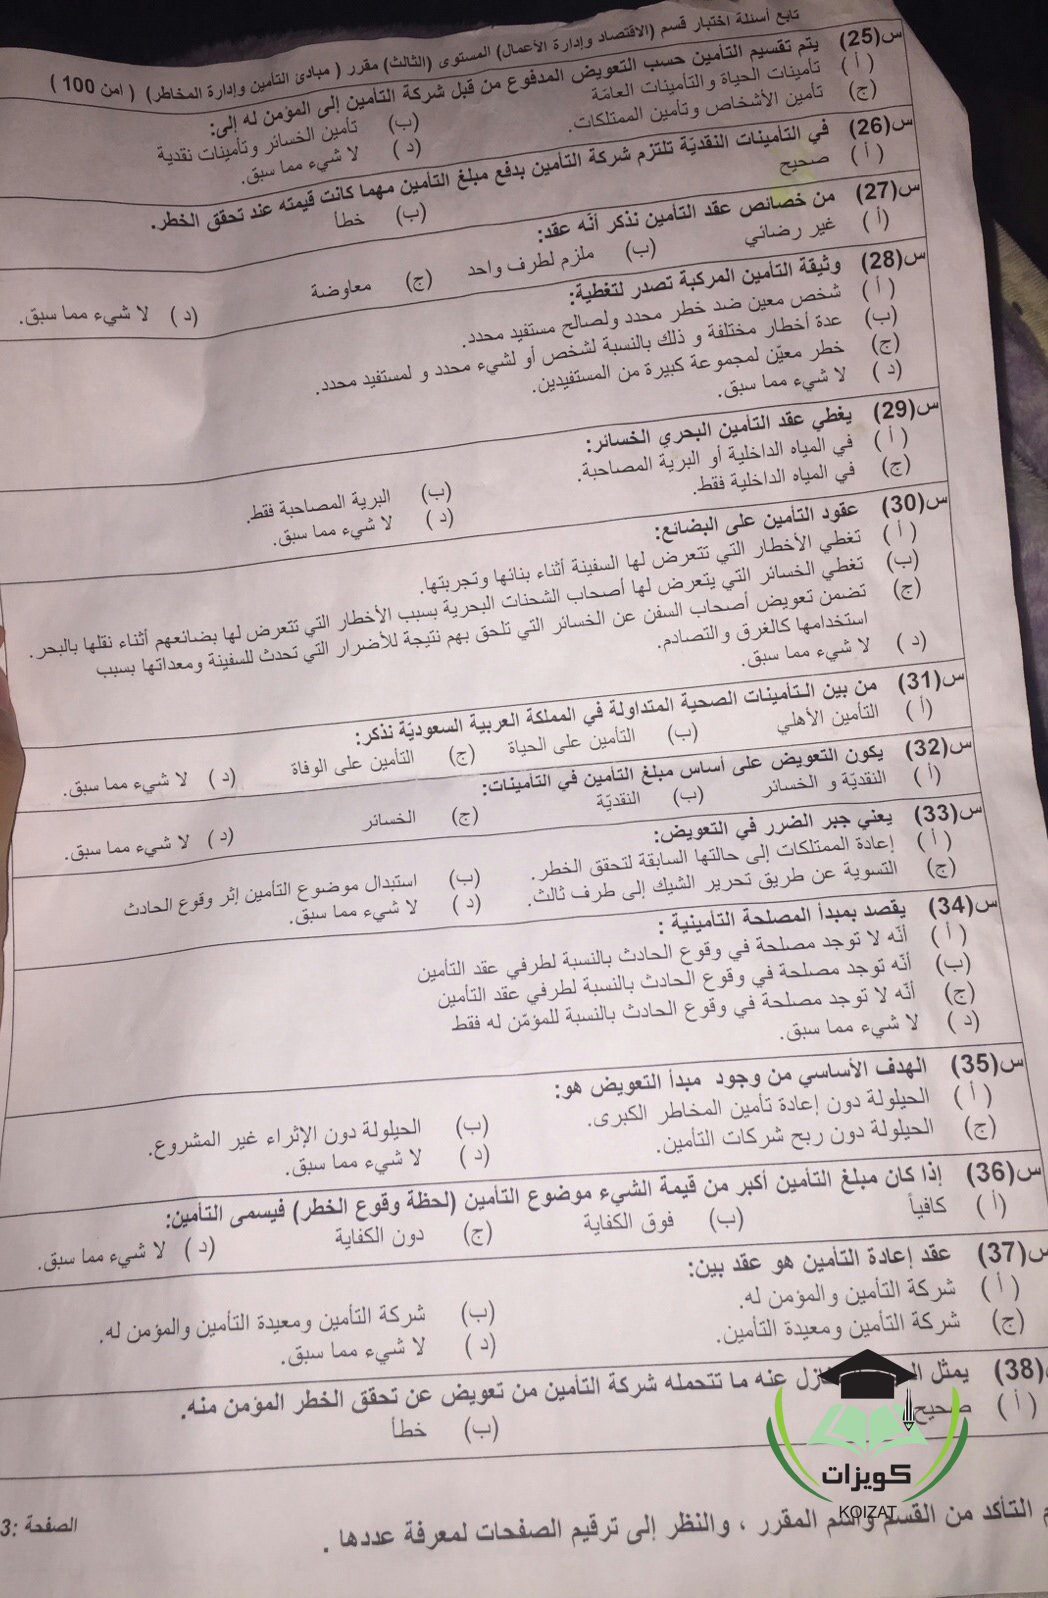 تابع أسئلة اختبار قسم (الاقتصاد وإدارة الأعمال) المستوى (الثالث) مقرر ( مبادئ التأمين وإدارة المخاطر) ( امن 100 )
س(25) يتم تقسيم التأمين حسب التعويض المدفوع من قبل شركة التأمين إلى المؤمن له إلى:
( أ ) تأمينات الحياة والتأمينات العامّة (ب) تأمين الخسائر وتأمينات نقدية
(ج) تأمين الأشخاص وتأمين الممتلكات. ( د ) لا شيء مما سبق.
س(26) في التأمينات النقديّة تلتزم شركة التأمين بدفع مبلغ التأمين مهما كانت قيمته عند تحقق الخطر.
( أ ) صحيح (ب) خطأ
س(27) من خصائص عقد التأمين نذكر أنّه عقد:
( أ ) غير رضائي (ب) ملزم لطرف واحد (ج) معاوضة ( د ) لا شيء مما سبق.
س(28) وثيقة التأمين المركبة تصدر لتغطية:
( أ ) شخص معين ضد خطر محدد ولصالح مستفيد محدد.
(ب) عدة أخطار مختلفة و ذلك بالنسبة لشخص أو لشيء محدد و لمستفيد محدد.
(ج) خطر معيّن لمجموعة كبيرة من المستفيدين.
( د ) لا شيء مما سبق.
س(29) يغطي عقد التأمين البحري الخسائر:
( أ ) في المياه الداخلية أو البرية المصاحبة. (ب) البرية المصاحبة فقط.
(ج) في المياه الداخلية فقط. ( د ) لا شيء مما سبق.
س(30) عقود التأمين على البضائع:
( أ ) تغطي الأخطار التي تتعرض لها السفينة أثناء بنائها وتجربتها.
(ب) تغطي الخسائر التي يتعرض لها أصحاب الشحنات البحرية بسبب الأخطار التي تتعرض لها بضائعهم أثناء نقلها بالبحر.
(ج) تضمن تعويض أصحاب السفن عن الخسائر التي تلحق بهم نتيجة للأضرار التي تحدث للسفينة ومعداتها بسبب
استخدامها كالغرق والتصادم.
( د ) لا شيء مما سبق.
س(31) من بين التأمينات الصحية المتداولة في المملكة العربية السعوديّة نذكر:
( أ ) التأمين الأهلي (ب) التأمين على الحياة (ج) التأمين على الوفاة ( د ) لا شيء مما سبق.
س(32) يكون التعويض على أساس مبلغ التأمين في التأمينات:
( أ ) النقديّة و الخسائر (ب) النقديّة (ج) الخسائر ( د ) لا شيء مما سبق.
س(33) يعني جبر الضرر في التعويض:
( أ ) إعادة الممتلكات إلى حالتها السابقة لتحقق الخطر. (ب) استبدال موضوع التأمين إثر وقوع الحادث
(ج) التسوية عن طريق تحرير الشيك إلى طرف ثالث. ( د ) لا شيء مما سبق.
س(34) يقصد بمبدأ المصلحة التأمينية :
( أ ) أنّه لا توجد مصلحة في وقوع الحادث بالنسبة لطرفي عقد التأمين
(ب) أنّه توجد مصلحة في وقوع الحادث بالنسبة لطرفي عقد التأمين
(ج) أنّه لا توجد مصلحة في وقوع الحادث بالنسبة للمؤمّن له فقط
( د ) لا شيء مما سبق.
س(35) الهدف الأساسي من وجود مبدأ التعويض هو:
( أ ) الحيلولة دون إعادة تأمين المخاطر الكبرى. (ب) الحيلولة دون الإثراء غير المشروع.
(ج) الحيلولة دون ربح شركات التأمين. ( د ) لا شيء مما سبق.
س(36) إذا كان مبلغ التأمين أكبر من قيمة الشيء موضوع التأمين (لحظة وقوع الخطر) فيسمى التأمين:
( أ ) كافياً (ب) فوق الكفاية (ج) دون الكفاية ( د ) لا شيء مما سبق.
س(37) عقد إعادة التأمين هو عقد بين:
( أ ) شركة التأمين والمؤمن له. (ب) شركة التأمين ومعيدة التأمين والمؤمن له.
(ج) شركة التأمين ومعيدة التأمين. ( د ) لا شيء مما سبق.
(38) يمثل عنه ما تتحمله شركة التأمين من تعويض عن تحقق الخطر المؤمن منه.
( أ ) صحيح (ب) خطأ
كويزات
KOIZAT
التأكد من القسم واسم المقرر ، والنظر إلى ترقيم الصفحات لمعرفة عددها .
الصفحة :3